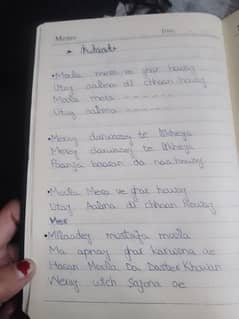 Memo
Date
• Moula mera ve ghar howay
Utay aalma di chhaan howay
Moula mera - - - - -
Utay aalma - - - - -
• Meray darwazay te likheya
Meray darwazay te likheya
Paanja baajon da naa howay
• Moula Mera ve ghar howay
Utay Aalma di chhaan howay
• Millaadey mustafa moula
Ma apnay ghar karwona ae
Hasan Moula Da Dastar Khawan
Weray wich sajona ae